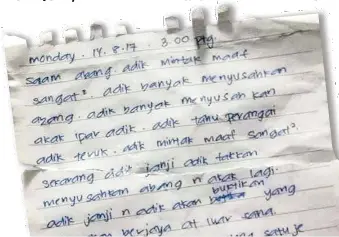 monday . 14 . 8.17 . 3.00 ptg.
salam abang. adik mintak maaf
sangat². adik banyak menyusahkan
abang. adik banyak menyusahkan
akak ipar adik. adik tahu perangai
adik teruk. adik mintak maaf sangat².
sekarang adik janji adik takkan
menyusahkan abang n akak lagi.
adik janji n adik akan buktikan yang
berjaya at luar sana.
satu je